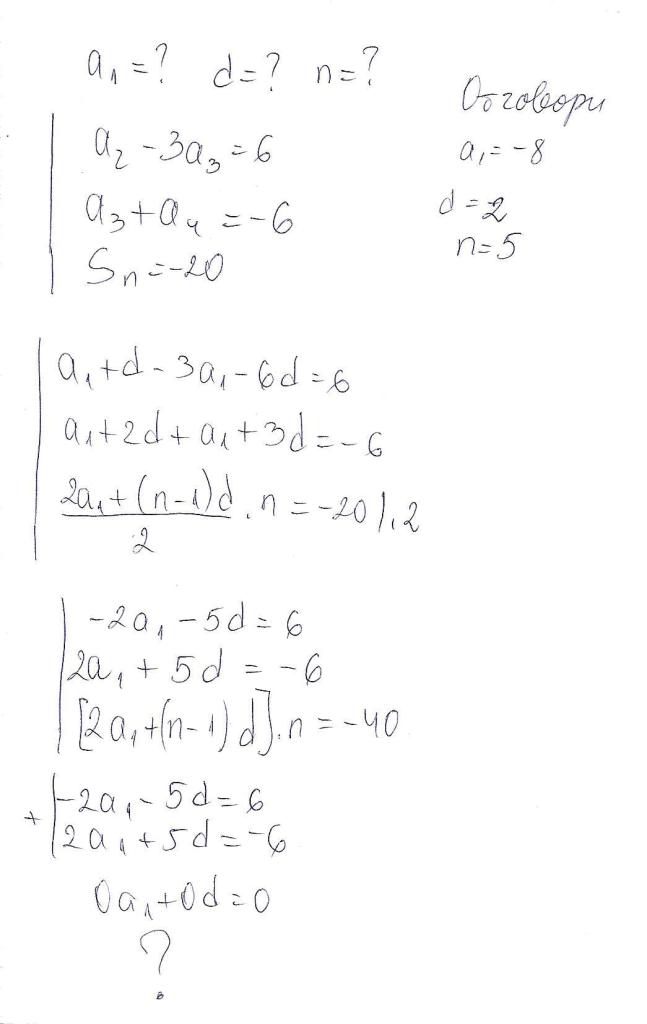 a₁ = ? d = ? n = ?
Отговори
a₂ - 3a₃ = 6
a₁ = -8
a₃ + a₄ = -6
d = 2
Sn = -20
n = 5
a₁ + d - 3a₁ - 6d = 6
a₁ + 2d + a₁ + 3d = -6
2a₁ + (n-1)d
2
. n = -20 /.2
-2a₁ - 5d = 6
2a₁ + 5d = -6
[2a₁ + (n-1)d].n = -40
+
-2a₁ - 5d = 6
2a₁ + 5d = -6
0a₁ + 0d = 0
?